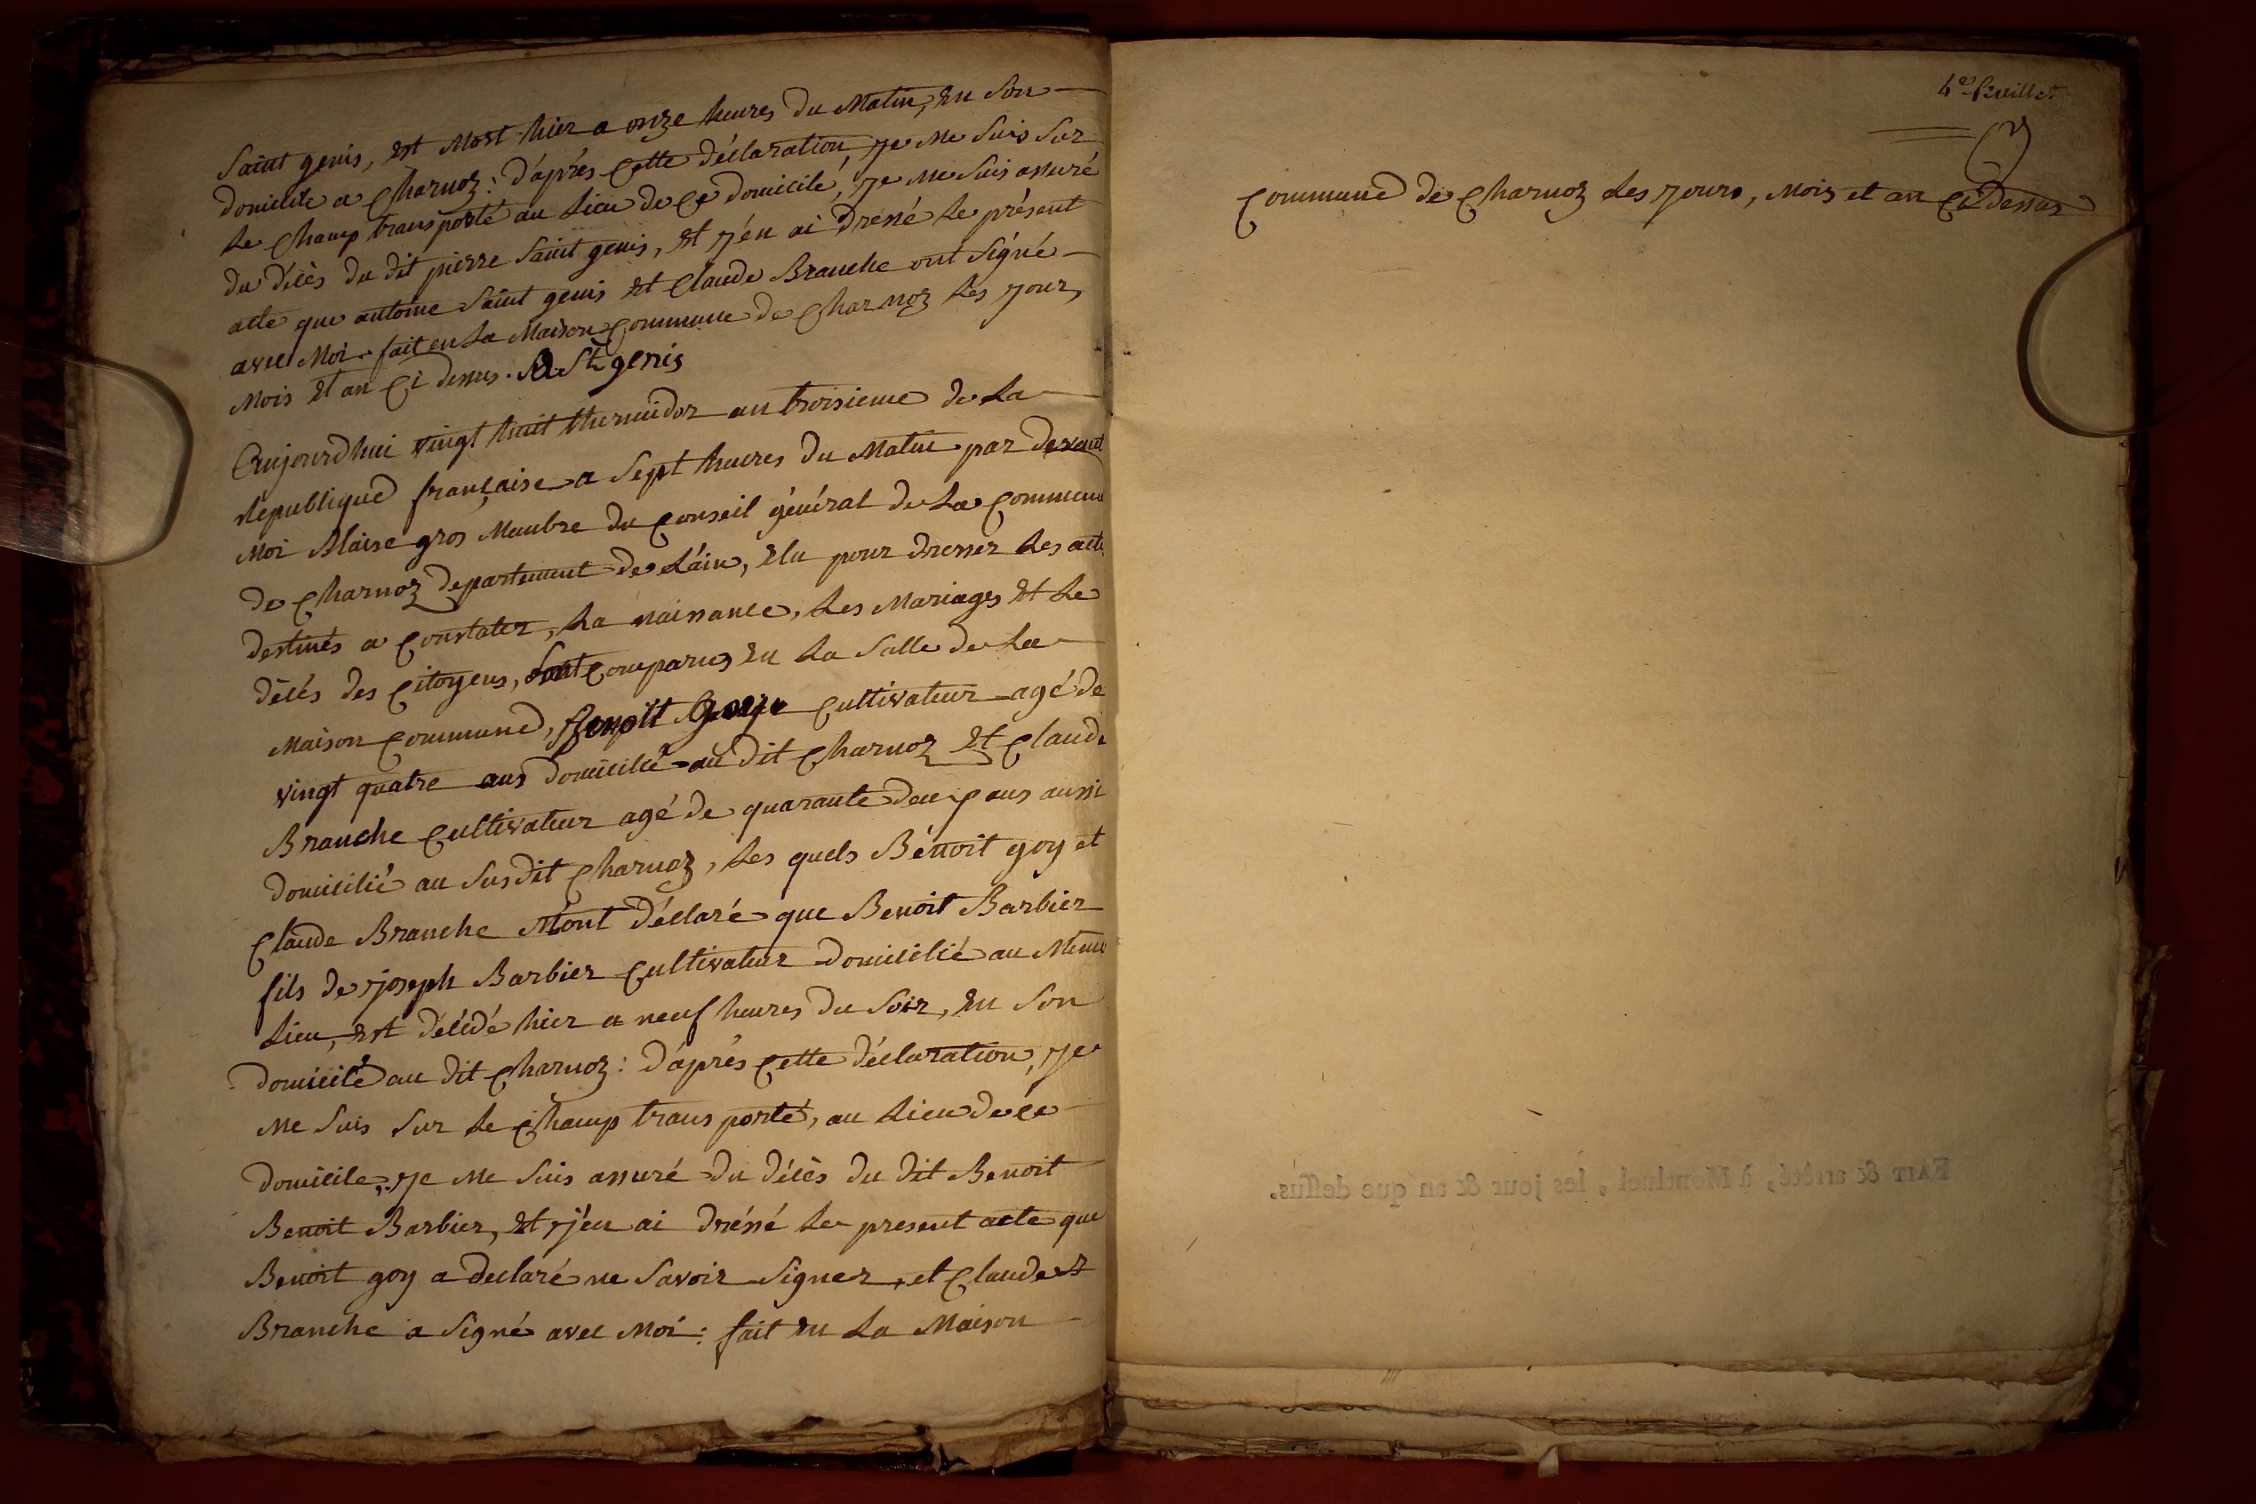 Saint genis, est Mort hier a onze heures du Matin, en son
domicile a Charnoz : d'aprés Cette déclaration, je me suis sur
le Champ transporté au Lieu de Ce domicilé, je me suis assuré
du décès du dit pierre Saint genis, et j'én ai dressé le présent
acte que antoine Saint genis et Claude Branche ont signé
avec Moi. fait en la Maison Commune de Charnoz les jour,
Mois et an Ci dessus. A St genis
Aujourdhui vingt huit thermidor an troisieme de la
république française a Sept heures du Matin par devant
Moi Blaise gros Membre du Conseil général de la Commune
de Charnoz departement de L'ain, elu pour dresser les acte
destinés a Constater, la naissance, les Mariages et le
décés des Citoyens, sont Comparus en la salle de la
Maison Commune, Benoît Goy Cultivateur agé de
vingt quatre ans domicilié au dit Charnoz et Claude
Branche Cultivateur agé de quarante deux ans aussi
domicilié au susdit Charnoz, les quels Bénoit goy et
Claude Branche M'ont déclaré que Benoit Barbier
fils de joseph Barbier Cultivateur domicilié au Même
Lieu, est décédé hier a neuf heures du soir, en son
domicilé au dit Charnoz : d'aprés Cette déclaration, je
me suis sur le Champ transporté, au Lieu de ce
domicile, je me suis assuré du décès du dit Benoit
Benoit Barbier, et j'en ai dréssé le present acte que
Benoit goy a declaré ne savoir signer, et Claude
Branche a signé avec Moi : fait en la Maison
4e feuillet
Commune de Charnoz les jours, Mois et an Ci dessus
FAIT & arrêté, à Montluel, les jour & an que dessus.